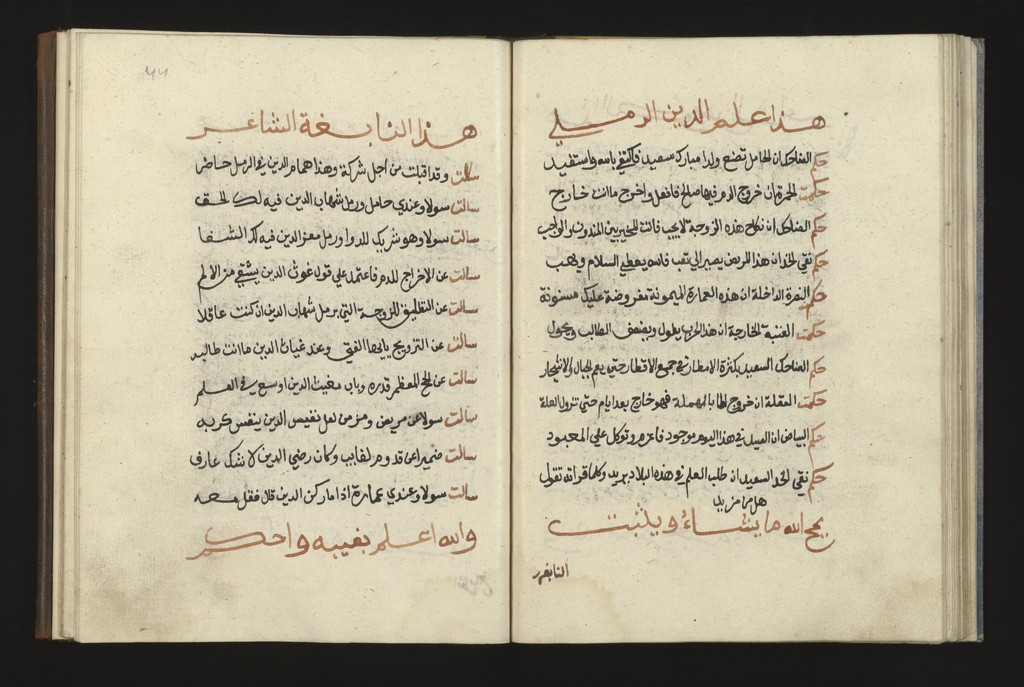 هذا علم الدين الرملي
حكم الضاحك ان الحامل تضع ولدا مبارك سعيد فأكتفي باسم واستفيد
حكمت الحمرة ان خروج الدم فيها صالح فافعل واخرج ما انت خارج
حكم الضاحك ان نكاح هذه الزوجة لا يجب فانت للخير بين المندوب والواجب
حكم نقي الخد ان هذا المريض يصير الي تعب فالله يعطي السلام ويهب
حكم النصرة الداخلة ان هذه العمارة الميمونة مفروضة عليك مسنونة
حكمت العتبة الخارجة ان هذا الحرب يطول ويضعف الطالب ويحول
حكم الضاحك السعيد بكثرة الامطار في جميع الاقطار حتي يعم الجبال والاشجار
حكمت العقلة ان خروج الطا بالمهملة فهو خارج بعد ايام حتي تزول العلة
حكم البياض ان الصيد في هذا اليوم موجود فاعزم وتوكل علي المعبود
حكم نقي الخد السعيد ان طلب العلم في هذه البلاد يريد وكلما قراته تقول
هل من مزيد
يمح الله ما يشاء ويثبت
النابغة
44
هذا النابغة الشاعر
سالت وقد اقبلت من اجل شركة وهذا همام الدين في الرمل حاضر
سالت سولا وعندي حامل ورمل شهاب الدين فيه لك الحق
سالت سولا وهو شربك للدوا ورمل معز الدين فيه لك الشفا
سالت عن الاخراج للدم فاعتمد علي قول غوث الدين يشفي من الالم
سالت عن التطليق للزوجة التي برمل شهاب الدين ان كنت عاقلا
سالت عن التزويج يا ايها الفتي وعند غياث الدين ما انت طالبه
سالت عن الحج المعظم قدره وباب مغيث الدين اوسع في العلم
سالت سولا عن مريض ومزمن لعل نفيس الدين ينفس كربه
سالت ضميرا عن قدوم لغايب وكان رضي الدين لا شك عارف
سالت سولا وعندي عمارة اذا ما ركن الدين قال فقل معه
والله اعلم بغيبه واحكم